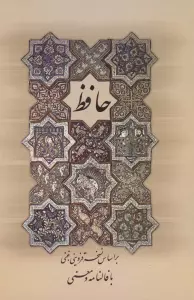 حافظ
بر اساس نسخه قزوینی و غنی
با فالنامه و معنی